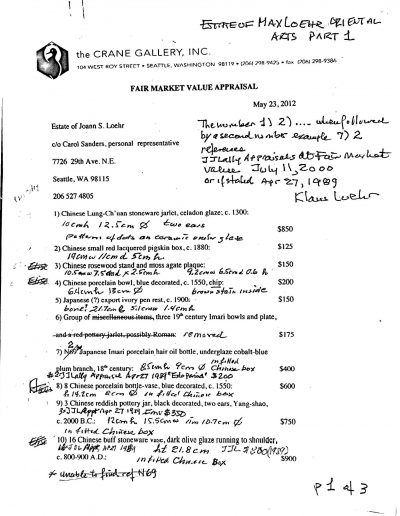 ESTATE OF MAX LOEHR ORIENTAL
ARTS PART 1
the CRANE GALLERY, INC.
104 WEST ROY STREET • SEATTLE, WASHINGTON 98119 • (206) 298-9425 • fax (206) 298-9386
FAIR MARKET VALUE APPRAISAL
May 23, 2012
Estate of Joann S. Loehr
The number 1) 2) .... when followed
by a second number example 7) 2
c/o Carol Sanders, personal representative
references
JJ Lally Appraisals at Fair Market
7726 29th Ave. N.E.
value July 11, 2000
Seattle, WA 98115
or if stated Apr 27, 1989
Klaus Loehr
206 527 4805
1) Chinese Lung-Ch'uan stoneware jarlet, celadon glaze; c. 1300:
10cmh 12.5cm Ø two ears
$850
pattern of dots on ceramic under glaze
2) Chinese small red lacquered pigskin box, c. 1880:
$125
19cm w 11cmd 5cmh
3) Chinese rosewood stand and moss agate plaque:
$150
10.5cmw 7.5cmd x 2.5cmh
4) Chinese porcelain bowl, blue decorated, c. 1550, chip:
$200
6.4cmh 15cm Ø brown stain inside
5) Japanese (?) export ivory pen rest, c. 1900:
$150
bone? 21.7cm 5.1cmw 1.4cmh
6) Group of miscellaneous items, three 19th century Imari bowls and plate,
and a red pottery jarlet, possibly Roman: removed
$175
7) Japanese Imari porcelain hair oil bottle, underglaze cobalt-blue
in fitted
plum branch, 18th century: 8.5cmh 9cm Ø Chinese box
$400
JJ Lally Appraisal Apr 27 1989 "Edo Period" $200
8) 8 Chinese porcelain bottle-vase, blue decorated, c. 1550:
$600
h 14.2cm 8cm Ø in fitted Chinese box
9) 3 Chinese reddish pottery jar, black decorated, two ears, Yang-shao,
JJL App Apr 27 1989 $350
c. 2000 B.C.: 12cmh 15.5cmw rim 10.7cm Ø
$750
in fitted Chinese box
10) 16 Chinese buff stoneware vase, dark olive glaze running to shoulder,
ht 21.8cm
c. 800-900 A.D.: in fitted Chinese Box
$900
* unable to find ref N69
p 1 of 3